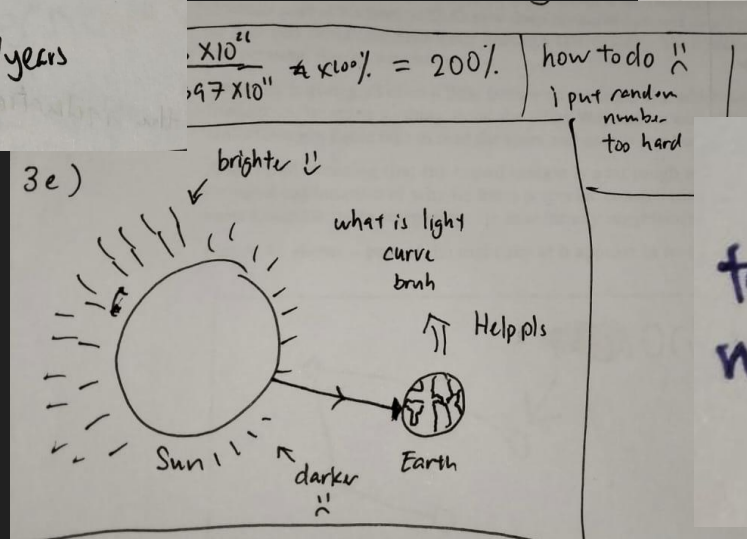 years
×10²⁶
97 ×10¹¹ ×100% = 200%
how to do
i put random
number
too hard
3e)
brighter :)
what is light
curve
bruh
Help pls
Sun
Earth
darker
:(